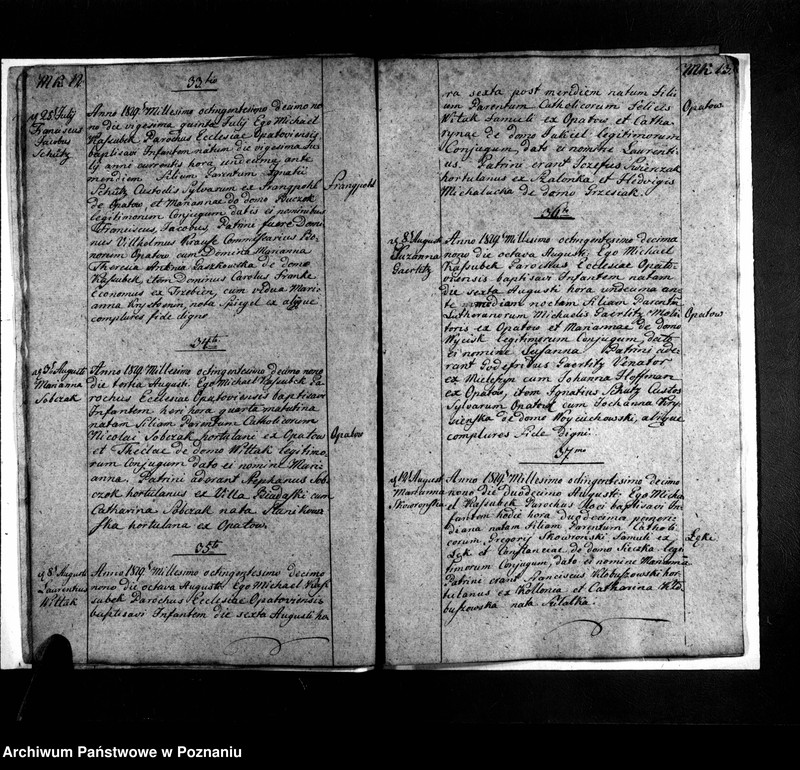 33tio
d. 25 July
Franciscus
Jacobus
Schütz
Anno 1819. Millesimo octingentesimo decimo no
no die vigesima quinta Julij Ego Michael
Kafsubek Parochus Ecclesiae Opatoviensis
baptisavi Infantem natum die vigesima Ju
lij anni currentis hora undecima ante
meridiem Filium Parentum Ignatii
Schütz Custodis Sylvarum ex Frangpohl
de Opatow et Mariannae de domo
legitimorum Conjugum datis ei nominibus
Franciscus Jacobus, Patrini fuere Domi
nus Vilhelmus Krause Commissarius Bo
norum Opatow cum Domina Marianna
Theresia Laszkowska de domo
Kafsubek, item Dominus Carolus Franke
Economus ex Trebin, cum vidua Mari
anna Krysztowin nata Spigel ex
complures fide digni
Frangpohl
34to
d. 3 Augusti
Marianna
Sobczak
Anno 1819. Millesimo octingentesimo decimo nono
die tertia Augusti. Ego Michael Kafsubek Pa
rochus Ecclesiae Opatoviensis baptisavi
Infantem heri hora quarta matutina
natam Filiam Parentum Catholicorum
Nicolai Sobczak hortulani ex Opatow
et Theclae de domo Witlak legitimo
rum Conjugum dato ei nomine Mari
anna. Patrini aderant Stephanus Sob
czok hortulanus ex Villa cum
Catharina Sobczak nata Stanikows
ska hortulana ex Opatow.
Opatow
35to
d. 8 Augusti
Laurentius
Witlak
Anno 1819. Millesimo octingentesimo decimo
nono die octava Augusti Ego Michael Kaf
subek Parochus Ecclesiae Opatoviensis
baptisavi Infantem die sexta Augusti ho
ra sexta post meridiem natum Fili
um Parentum Catholicorum Felicis
Witlak famuli ex Opatow et Catha
rynae de domo legitimorum
Conjugum, dato ei nomine Laurenti
us. Patrini erant Jozefus Swierczak
hortulanus ex et Hedvigis
Michalacka de domo Grzesiak.
Opatow
36to
d. 8 Augusti
Suzanna
Gaertitz
Anno 1819. Millesimo octingentesimo decimo
nono die octava Augusti, Ego Michael
Kafsubek Parochus Ecclesiae Opato
viensis baptisavi Infantem natam
die sexta Augusti hora undecima an
te mediam noctem Filiam Parentum
Lutheranorum Michaelis Gaertitz Moli
toris ex Opatow et Mariannae de domo
Wycisk legitimorum Conjugum, dato
ei nomine Susanna. Patrini ade
rant Godefridus Gaertitz Venator
ex cum Johanna Hoffman
ex Opatow, item Ignatius Schütz Custos
Sylvarum Opatow cum Joohanna Kry
de domo Woyciechowski, aliique
complures Fide Digni.
Opatow
37mo
d. 12 Augusti
Marianna
Skowronska
Anno 1819. Millesimo octingentesimo decimo
nono die duodecimo Augusti. Ego Micha
el Kafsubek Parochus Loci baptisavi In
fantem hodie hora duodecima pomeri
diana natam Filiam Parentum Catholi
corum, Gregorij Skowronski famuli ex
Łęk et Constanciae de domo Sieczka legi
timorum Conjugum, dato ei nomine Marianna
Patrini erant Franciscus Kłobuszowski hor
tulanus ex Kollonia et Catharina Kło
buszowska nata
Łęki
Archiwum Państwowe w Poznaniu